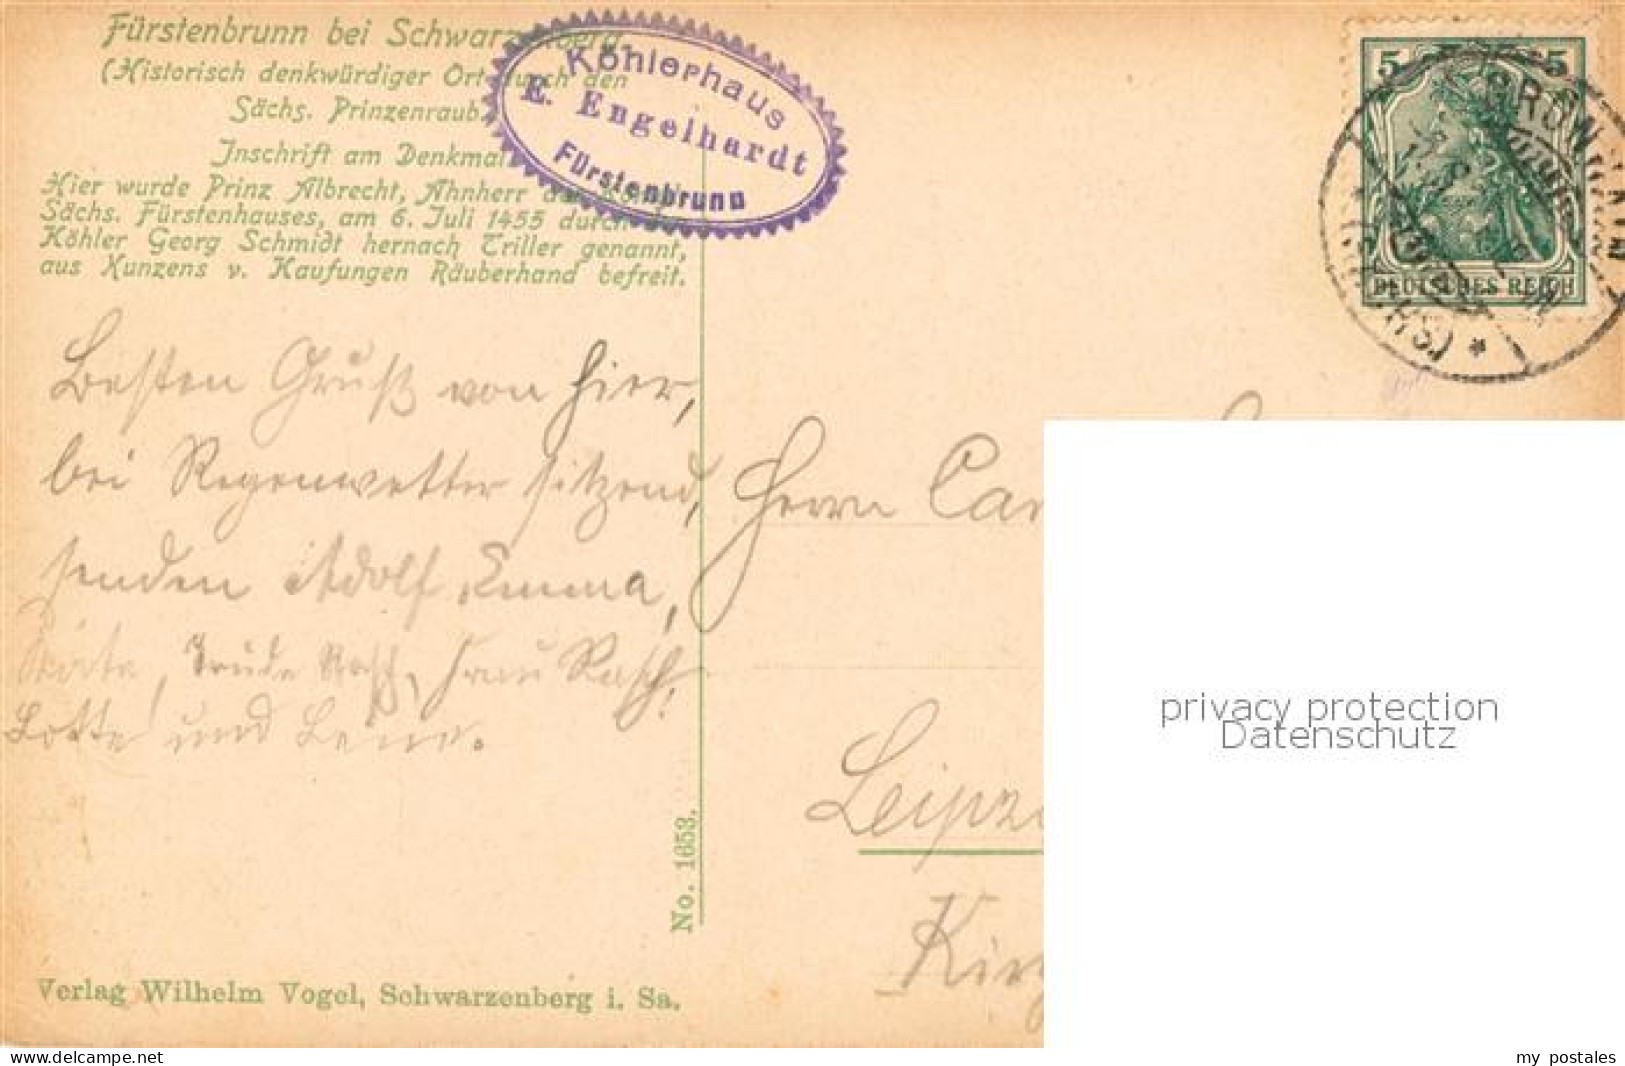 Fürstenbrunn bei Schwarzenberg.
(Historisch denkwürdiger Ort durch den
Sächs. Prinzenraub.
Inschrift am Denkmal
Hier wurde Prinz Albrecht, Ahnherr des
Sächs. Fürstenhauses, am 6. Juli 1455 durch den
Köhler Georg Schmidt hernach Triller genannt,
aus Kunzens v. Kaufungen Räuberhand befreit.
Köhlerhaus
E. Engelhardt
Fürstenbrunn
5 5
DEUTSCHES REICH
(SACHS.) *
Besten Gruß von hier,
bei Regenwetter sitzend,
senden Adolf, Emma,
Käte, Trude Rasch, Frau Rasch,
Lotte und Lene.
Herrn Car
Leipzi
Kir
No. 1653.
Verlag Wilhelm Vogel, Schwarzenberg i. Sa.
privacy protection
Datenschutz
www.delcampe.net
my_postales